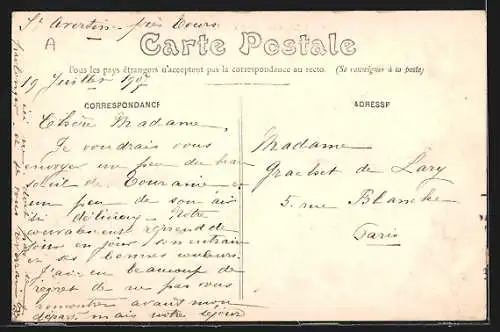 St Avertin près Tours
A
Carte Postale
Tous les pays étrangers n'acceptent pas la correspondance au recto. (Se renseigner à la poste)
19 Juillet 1907
CORRESPONDANCE
ADRESSE
Chère Madame,
Je voudrais vous
envoyer un peu du beau
soleil de Touraine, et
un peu de son air
si délicieux. Notre
convalescente reprend de
jour en jour son entrain
et ses bonnes couleurs.
J'ai eu beaucoup de
regret de ne pas vous
rencontrer avant mon
départ, mais notre séjour
Madame
de Lary
5 rue Blanche
Paris